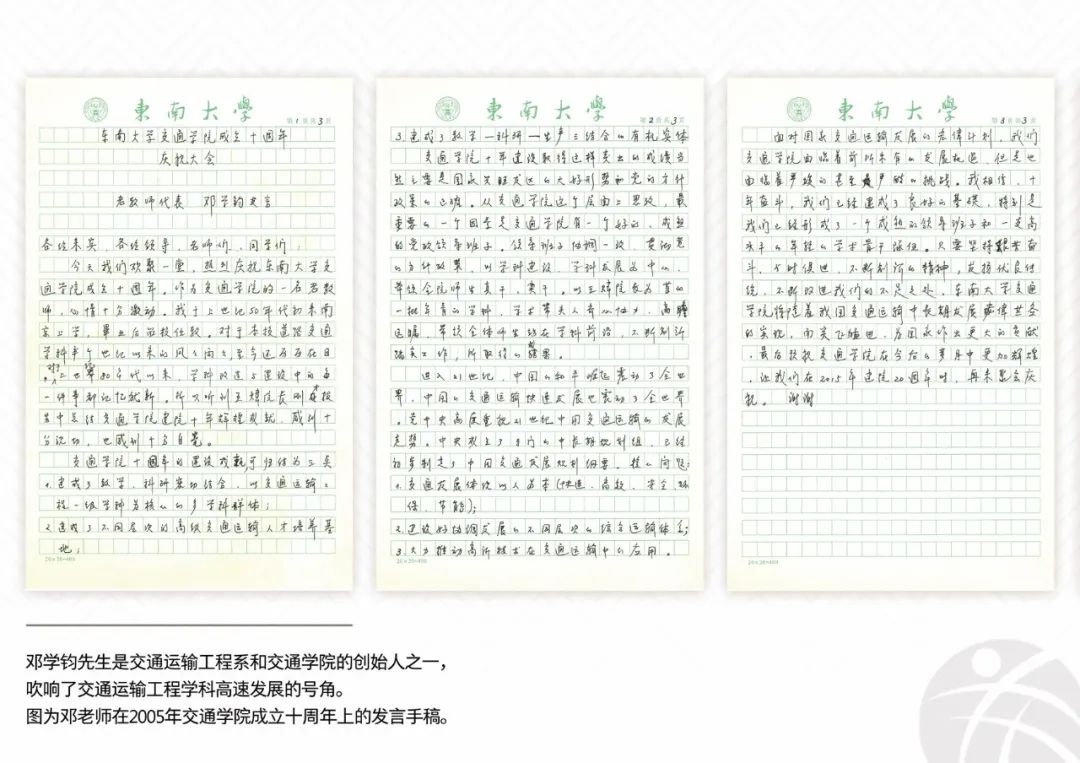 東南大學
第1页共3页
东南大学交通学院成立十周年
庆祝大会
老教师代表 邓学钧发言
各位来宾,各位领导,老师们,同学们:
今天我们欢聚一堂,热烈庆祝东南大学交
通学院成立十周年。作为交通学院的一名老教
师,心情十分激动。我于上世纪50年代初来南
京上学,毕业后留校任教。对于本校道路交通
学科半个世纪以来的风风雨雨,至今还历历在目
上世纪80年代以来,学科改造与建设中的每
一件事都记忆犹新。所以听到王炜院长刚才报
告中总结交通学院建院十年辉煌成就,感到十
分激动,也感到十分自豪。
交通学院十周年的建设成就可归结为三类
1.建成了教学、科研密切结合,以交通运输工
程一级学科为核心的多学科群体;
2.建成了不同层次的高级交通运输人才培养基
地;
20×20=400
東南大學
第2页共3页
3.建成了教学—科研—生产三结合的有机实体
交通学院十年建设取得这样突出的成绩当
然主要是国家兴旺发达的大好形势和党的方针
政策的正确。从交通学院这个层面上思考,最
重要的一个因素是交通学院有一个好的、成熟
的党政领导班子。领导班子协调一致,贯彻党
的方针政策,以学科建设、学科发展为中心,
带领全院师生真干,实干。以王炜院长为首的
一批年青的学科、学术带头人齐心协力,高瞻
远瞩,带领全体师生站在学科前沿,不断创新
踏实工作,所取得的结果。
进入21世纪,中国的和平崛起震动了全世
界,中国的交通运输快速发展也震动了全世界。
党中央高度重视21世纪中国交通运输的发展
态势。中央成立了专门的中长期规划组,已经
初步制定了中国交通发展规划纲要。核心问题:
1.交通发展体现以人为本(快速、高效、安全、环
保、节能);
2.建设好协调发展的不同层次的综合运输体系;
3.大力推动高新技术在交通运输中的应用。
20×20=400
東南大學
第3页共3页
面对国家交通运输发展的宏伟计划,我们
交通学院面临着前所未有的发展机遇,但是也
面临着严峻的甚至是严酷的挑战。我相信,十
年奋斗,我们已经建成了良好的基础,特别是
我们已经形成了一个成熟的领导班子和一支高
水平的年轻的学术骨干队伍。只要坚持艰苦奋
斗、与时俱进、不断创新的精神,发扬优良传
统,不断改进我们的不足之处,东南大学交通
学院将随着我国交通运输中长期发展宏伟任务
的实现,而突飞猛进,为国家作出更大的贡献
最后祝愿交通学院在今后的岁月中更加辉煌,
让我们在2015年建院20周年时,再来聚会庆
祝。 谢谢
20×20=400
邓学钧先生是交通运输工程系和交通学院的创始人之一,
吹响了交通运输工程学科高速发展的号角。
图为邓老师在2005年交通学院成立十周年上的发言手稿。